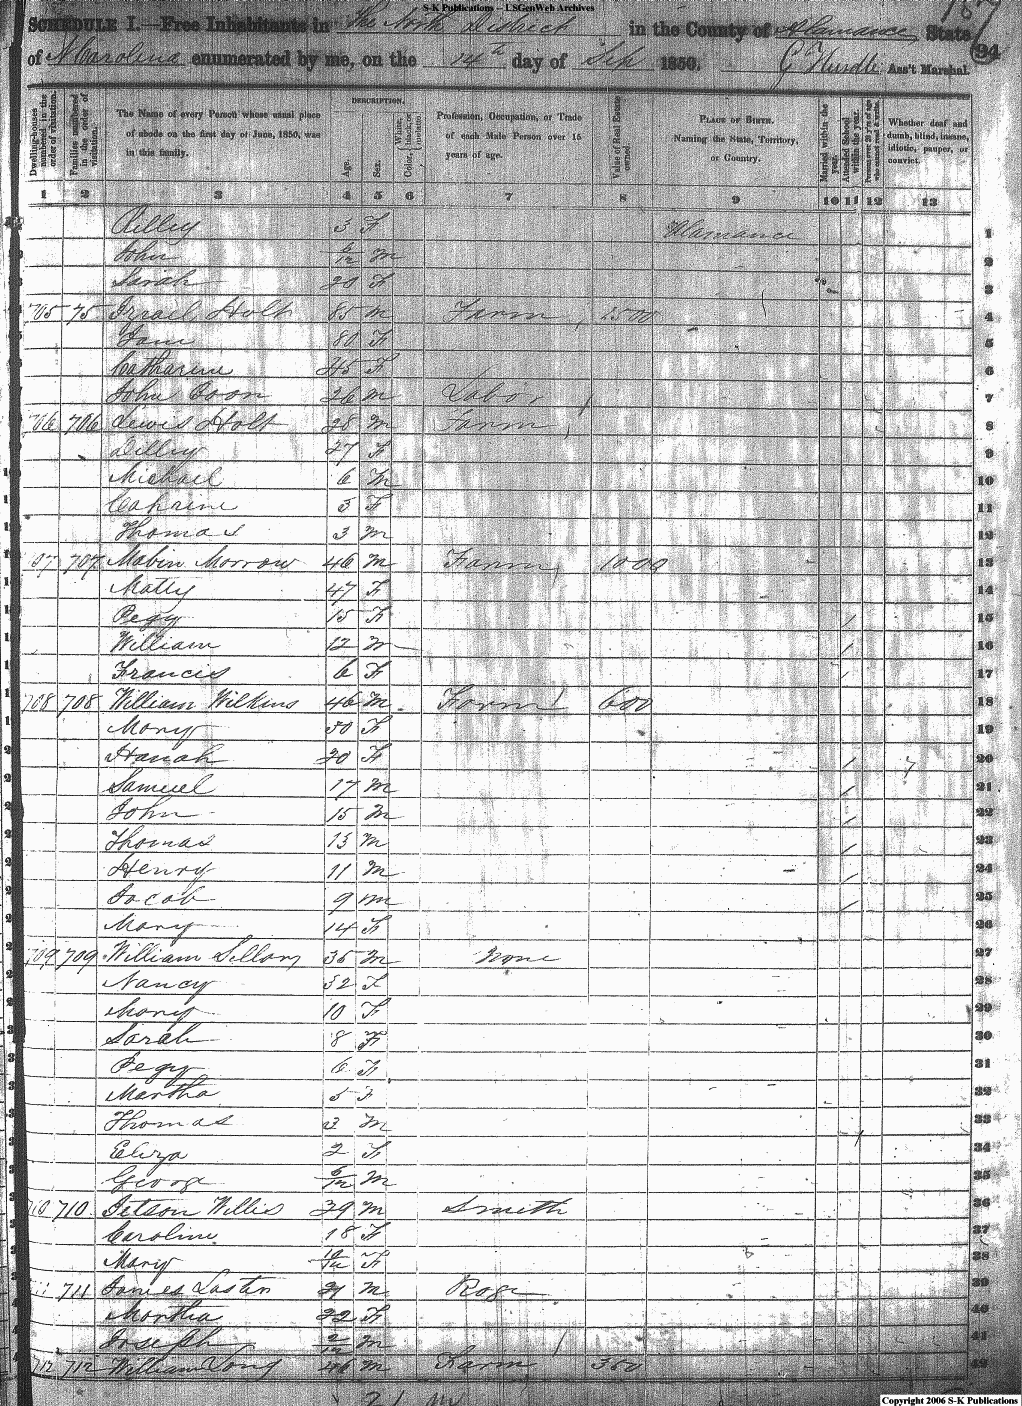 S-K Publications -- LSGenWeb Archives
187
SCHEDULE I.—Free Inhabitants in The North District in the County of Alamance State
of N Carolina enumerated by me, on the 14th day of Sep 1850. G Hurdle Ass't Marshal.
94
Dwelling-houses numbered in the order of visitation.
Families numbered in the order of visitation.
The Name of every Person whose usual place of abode on the first day of June, 1850, was in this family.
DESCRIPTION.
Age.
Sex.
Color, White, black, or mulatto.
Profession, Occupation, or Trade of each Male Person over 15 years of age.
Value of Real Estate owned.
PLACE OF BIRTH.
Naming the State, Territory, or Country.
Married within the year.
Attended School within the year.
Persons over 20 y'rs of age who cannot read & write.
Whether deaf and dumb, blind, insane, idiotic, pauper, or convict.
1 2 3 4 5 6 7 8 9 10 11 12 13
3 F Alamance 1
John 6/12 M 2
Sarah 20 F 3
705 75 Israel Holt 85 M Farm 1500 4
Jane 80 F 5
Catharine 45 F 6
John Coon 26 M Labor 7
706 706 Lewis Holt 28 M Farm 8
Dilley 27 F 9
Michael 6 M 10
Cathrine 5 F 11
Thomas 3 M 12
707 707 Mabin Morrow 46 M Farm 1000 13
Matty 47 F 14
Pegy 15 F / 15
William 12 M / 16
Francis 6 F / 17
708 708 William Wilkins 46 M Farm 600 18
Mary 50 F 19
Hanah 20 F / 20
Samuel 17 M / 21
John 15 M / 22
Thomas 13 M / 23
Henry 11 M / 24
Jacob 9 M / 25
Mary 14 F 26
709 709 William 35 M None 27
Nancy 32 F 28
Mary 10 F 29
Sarah 8 F 30
Pegy 6 F 31
Martha 5 F 32
Thomas 3 M 33
Eliza 2 F 34
George 6/12 M 35
710 710 Willis 29 M Smith 36
Caroline 18 F 37
Mary 10/12 F 38
711 James 21 M 39
Martha 22 F 40
Joseph 2/12 M 41
712 712 William Long 46 M Farm 350 42
21 M
Copyright 2006 S-K Publications